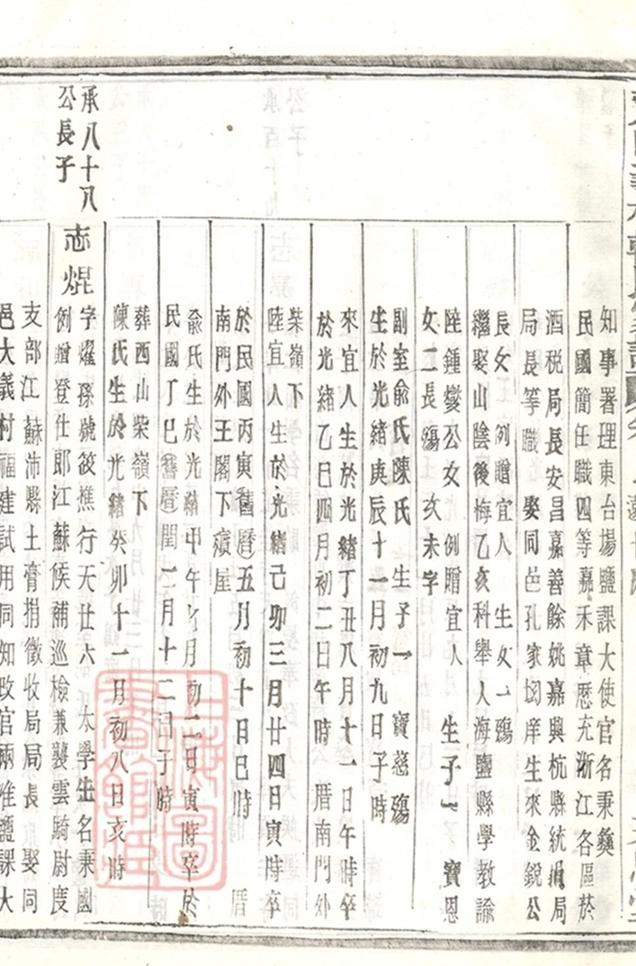 知事署理東台場鹽課大使官名秉彝
民國簡任職四等嘉禾章歷充浙江各區菸
酒税局長安昌嘉善餘姚嘉興杭縣統捐局
局長等職　娶同邑孔家㘭庠生來金銳公
長女　例贈宜人　生女一殤
繼娶山陰後梅乙亥科舉人海鹽縣學教諭
陸鍾燮公女　例贈宜人　生子一　寶恩
女二長殤　次未字
副室俞氏陳氏　生子一　寶慈殤
生於光緒庚辰十一月初九日子時
來宜人生於光緒丁丑八月十一日午時卒
於光緒乙巳四月初二日午時　厝南門外
柴嶺下
陸宜人生於光緒己卯三月廿四日寅時卒
於民國丙寅舊曆五月初十日巳時　厝
南門外王閣下殯屋
俞氏生於光緒甲午七月初二日寅時卒於
民國丁巳舊曆閏二月十二日子時
葬西山柴嶺下
陳氏生於光緒癸卯十一月初八日亥時
承八十八
公長子
志焜
字燿孫號筱樵行天廿六　太學生名秉國
例贈登仕郎江蘇候補巡檢兼襲雲騎尉度
支部江蘇沛縣土膏捐徵收局局長　娶同
邑大義村福建試用同知政官兩淮鹽課大